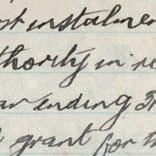 st instalment
thority in re
ar ending 31
grant for th